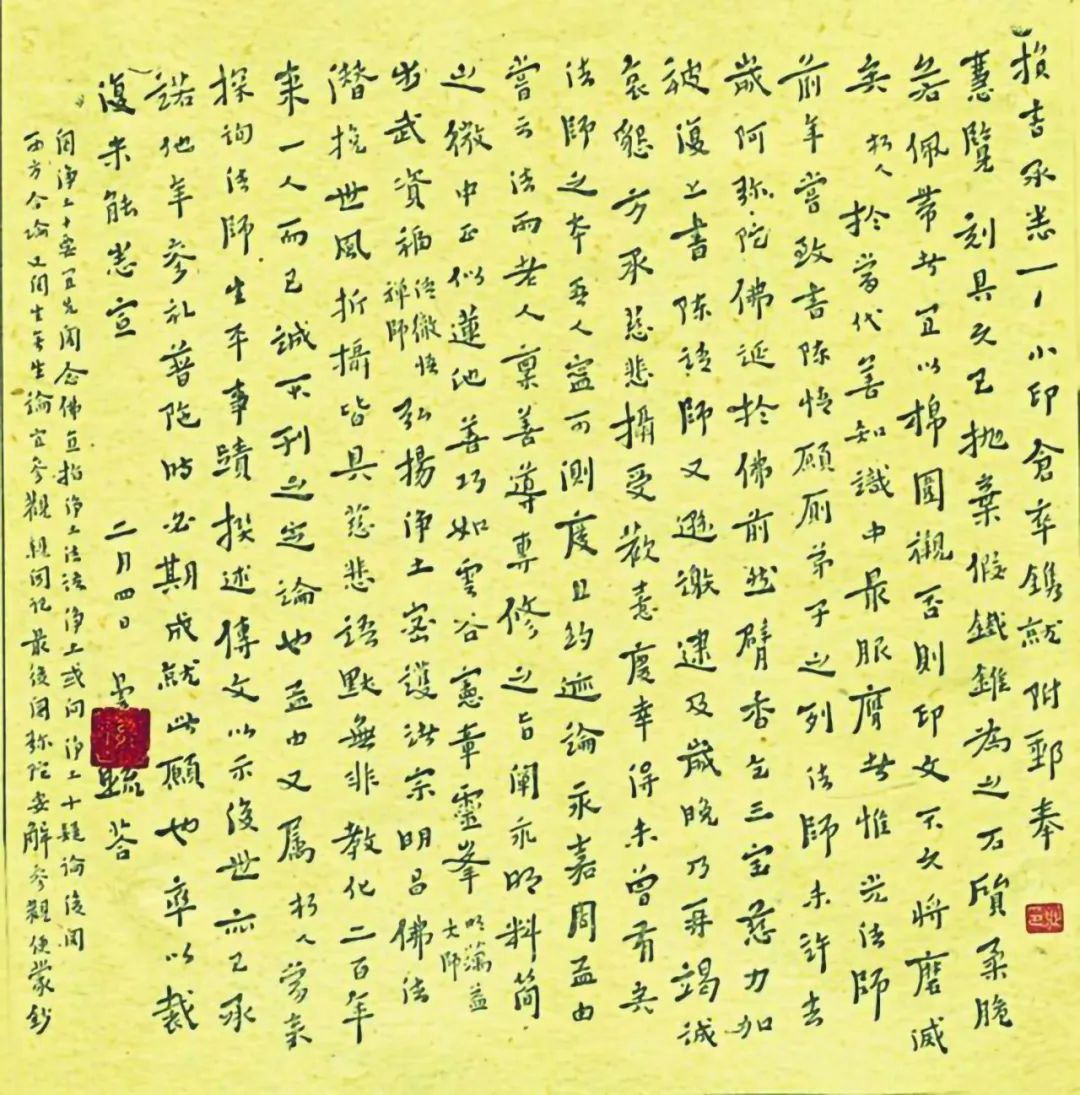 損書承悉一一小印倉卒鐫就附郵奉
慧覽刻具久已拋棄假鐵錐為之石質柔脆
若佩帶者宜以棉圍襯否則印文不久將磨滅
矣朽人於當代善知識中最服膺者惟光法師
前年嘗致書陳情願廁弟子之列法師未許去
歲阿彌陀佛誕於佛前然臂香乞三寶慈力加
被復上書陳請師又遜謝逮及歲晚乃再竭誠
哀懇方承慈悲攝受歡喜慶幸得未曾有矣
法師之本吾人寧可測度且約迹論永嘉周孟由
嘗云法雨老人稟善導專修之旨闡永明料簡
之微中正似蓮池善巧如雲谷憲章靈峯明蕅益大師
步武資福清徹悟禪師弘揚淨土密護諸宗明昌佛法
潛挽世風折攝皆具慈悲語默無非教化二百年
來一人而已誠不刊之定論也孟由又屬朽人當來
探詢法師生平事蹟撰述傳文以示後世亦已承
諾他年參禮普陀時必期成就此願也率以裁
復未能悉宣
二月四日 曇昉疏答
閱淨土十要宜先閱念佛直指淨土法語淨土或問淨土十疑論後閱
西方合論又閱生無生論宜參觀親聞記最後閱彌陀要解參觀便蒙鈔